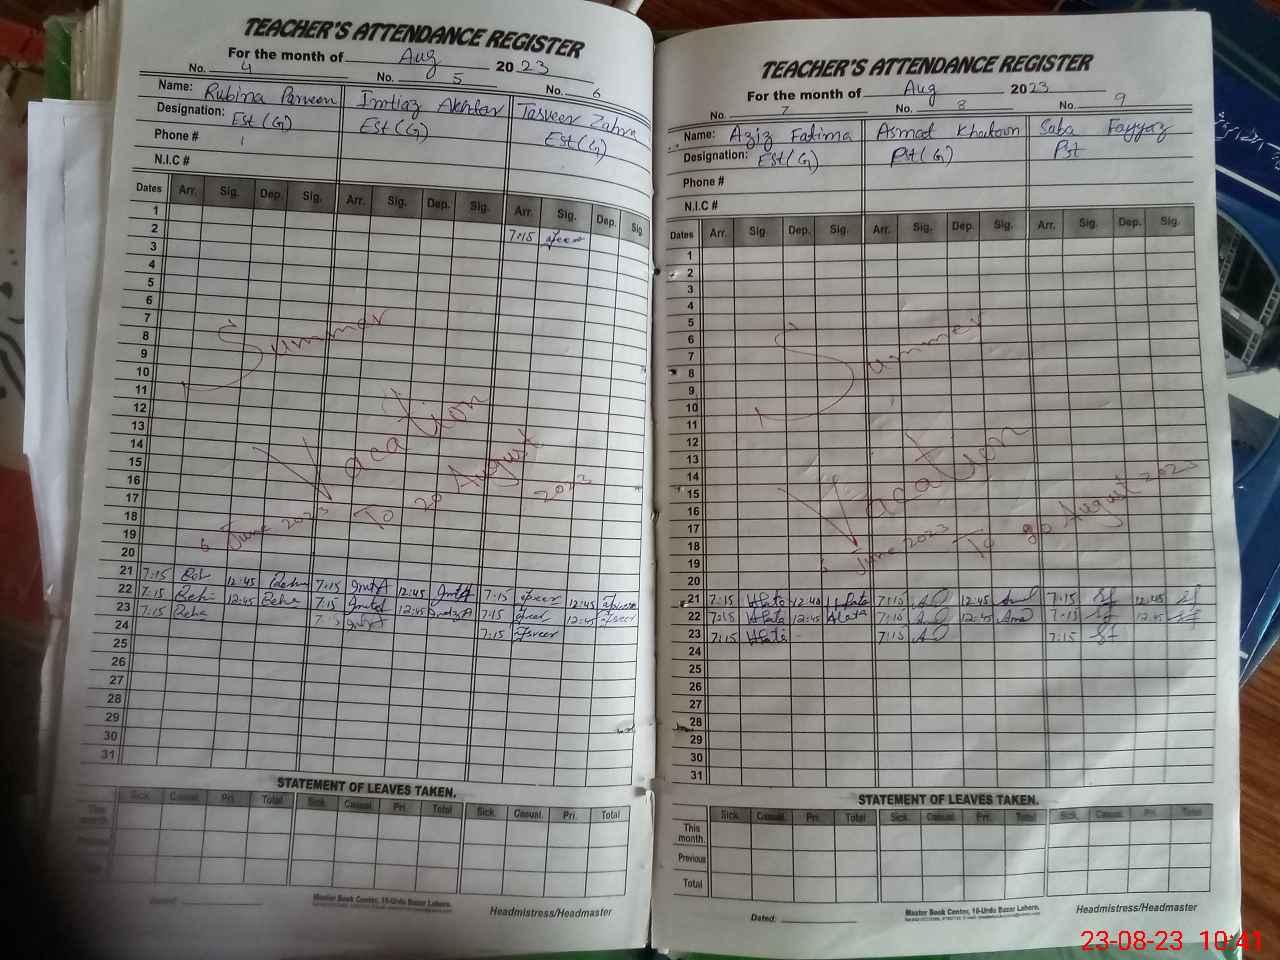 TEACHER'S ATTENDANCE REGISTER
For the month of Aug 2023
No. 4 No. 5 No. 6
Name: Rubina Parveen Imtiaz Akhtar Tasveer Zahra
Designation: Est (G) Est (G) Est (G)
Phone #
N.I.C #
Dates Arr. Sig. Dep. Sig. Arr. Sig. Dep. Sig. Arr. Sig. Dep. Sig.
1
2 7:15
3
4
5
6
7
8
9
10
11
12
13
14
15
16
17
18
19
20
Summer
Vacation
6 June 2023 To 20 August
21 7:15 12:45 7:15 12:45 7:15 12:45
22 7:15 12:45 7:15 12:45 7:15 12:45
23 7:15 7:15 7:15
24
25
26
27
28
29
30
31
STATEMENT OF LEAVES TAKEN.
Sick. Casual. Pri. Total Sick. Casual. Pri. Total Sick. Casual. Pri. Total
This month.
Dated:
Master Book Center, 10-Urdu Bazar Lahore.
Headmistress/Headmaster
TEACHER'S ATTENDANCE REGISTER
For the month of Aug 2023
No. 7 No. 8 No. 9
Name: Aziz Fatima Asmat Khatoon Saba Fayyaz
Designation: Est (G) Pst (G) Pst
Phone #
N.I.C #
Dates Arr. Sig. Dep. Sig. Arr. Sig. Dep. Sig. Arr. Sig. Dep. Sig.
1
2
3
4
5
6
7
8
9
10
11
12
13
14
15
16
17
18
19
20
Summer
Vacation
6 June 2023 To 20 August 2023
21 7:15 12:40 7:15 12:45 7:15 12:45
22 7:15 12:45 7:15 12:45 7:15 12:45
23 7:15 7:15 7:15
24
25
26
27
28
29
30
31
STATEMENT OF LEAVES TAKEN.
Sick. Casual. Pri. Total Sick. Casual. Pri. Total Sick. Casual. Pri. Total
This month.
Previous
Total
Dated:
Master Book Center, 10-Urdu Bazar Lahore.
Headmistress/Headmaster
23-08-23 10:41